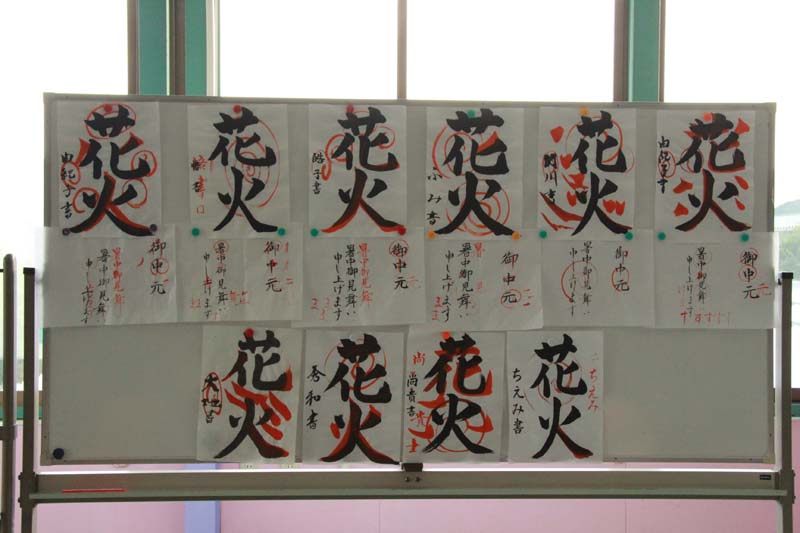 花火
由紀子書
花火
花火
酷子書
花火
ふみ書
花火
花火
御中元
暑中御見舞い
申し上げます
御中元
暑中御見舞い
申し上げます
御中元
暑中御見舞い
申し上げます
御中元
暑中御見舞い
申し上げます
御中元
暑中御見舞い
申し上げます
御中元
暑中御見舞い
申し上げます
花火
花火
秀和書
花火
尚貴書
花火
ちえみ書
ちえみ